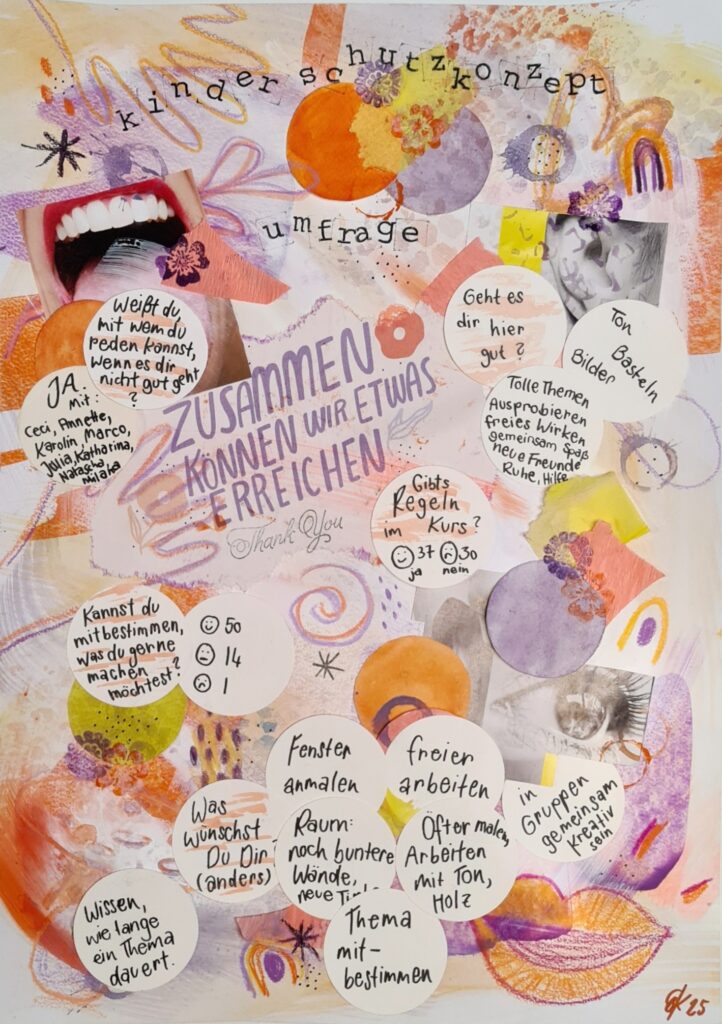 kinderschutzkonzept
umfrage
Weißt du,
mit wem du
reden kannst,
wenn es dir
nicht gut geht
?
JA
mit:
Ceci, Annette,
Karolin, Marco,
Julia, Katharina,
Natascha,
Milana
ZUSAMMEN
KÖNNEN WIR ETWAS
ERREICHEN
Thank You
Geht es
dir hier
gut?
Ton
Basteln
Bilder
Tolle Themen
Ausprobieren
freies Wirken
gemeinsam Spaß
neue Freunde
Ruhe, Hilfe
Gibts
Regeln
im Kurs?
37 30
ja nein
Kannst du
mitbestimmen,
was du gerne
machen
möchtest?
50
14
1
Fenster
anmalen
freier
arbeiten
in
Gruppen
gemeinsam
kreativ
sein
Was
wünschst
Du Dir
(anders)
Raum:
noch buntere
Wände,
neue
Öfter malen,
Arbeiten
mit Ton,
Holz
Wissen,
wie lange
ein Thema
dauert.
Thema
mit-
bestimmen
25